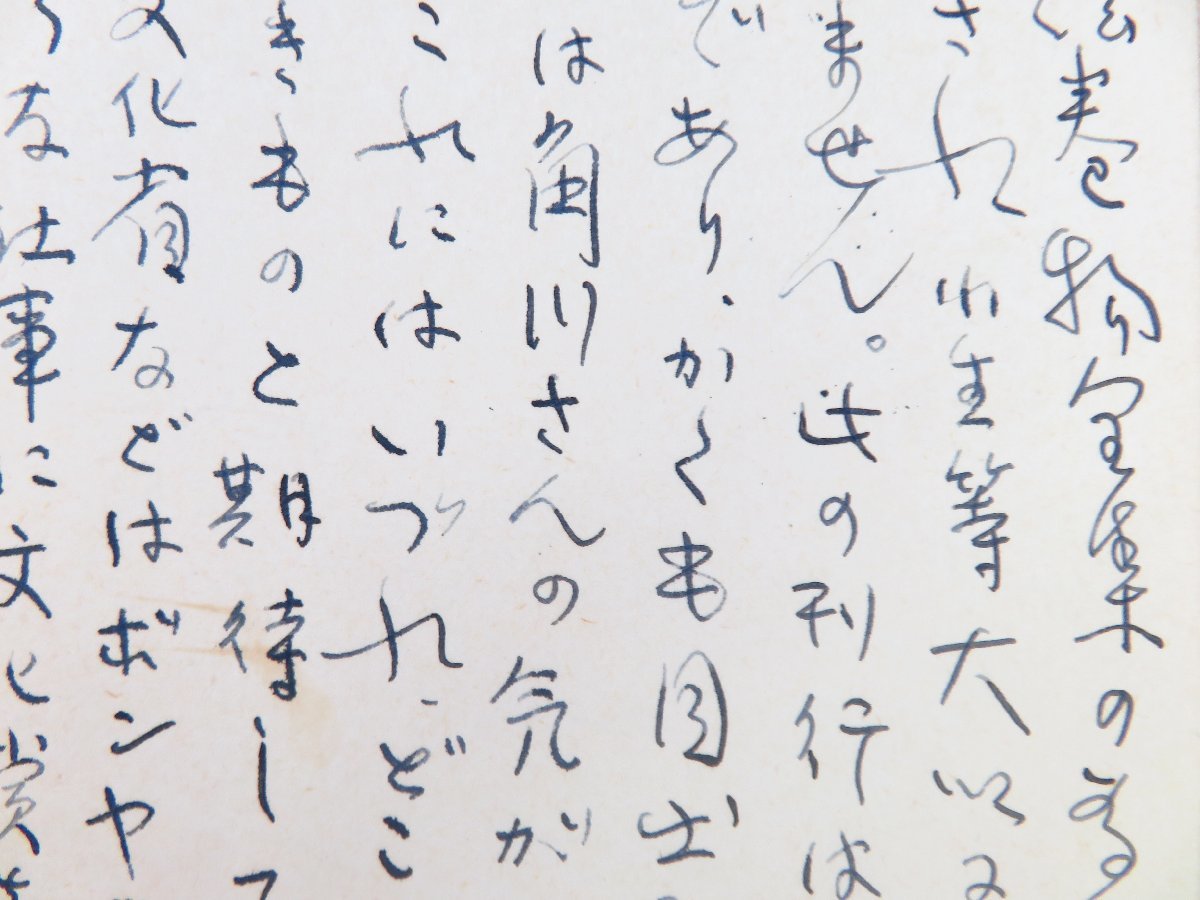 絵巻物全集の為
され 小生等大いに
ません。此の刊行は
であり、かくも目出
は角川さんの気が
これにはいづれ、どこ
きものと期待して
文化省などはボンヤ
うな仕事に文化賞